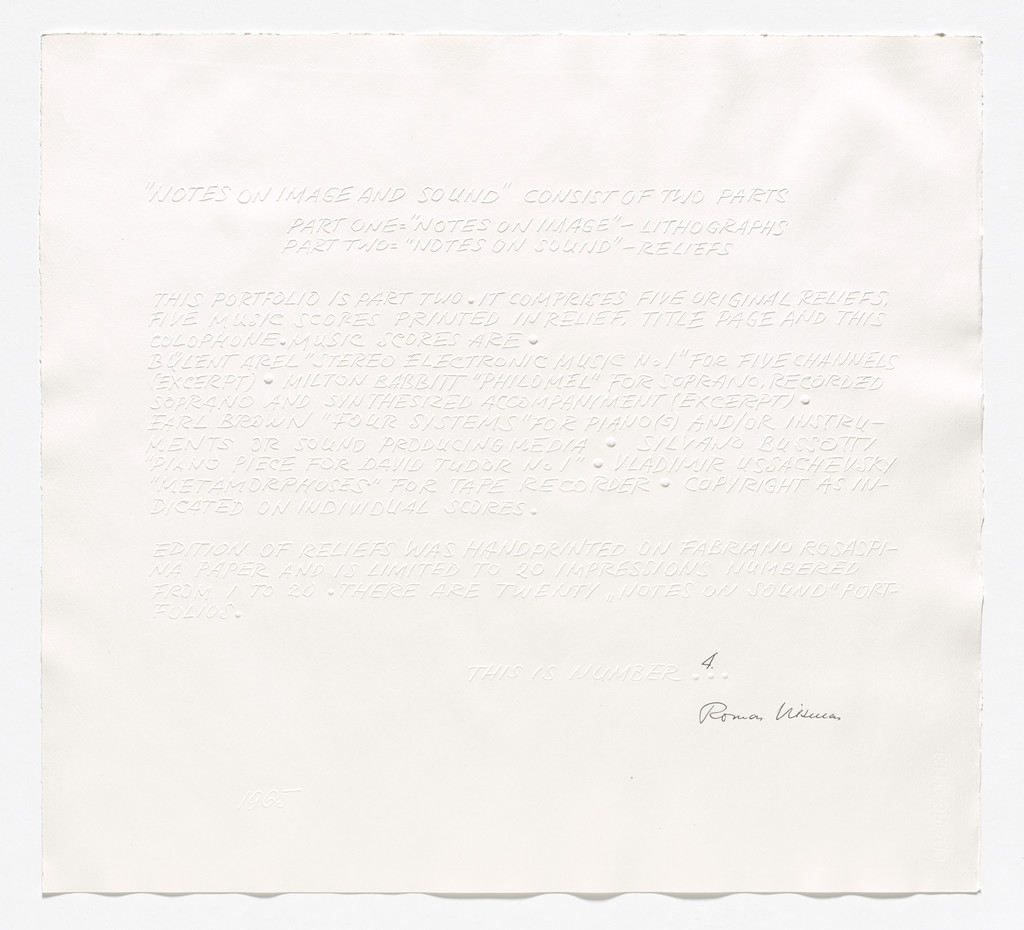 "NOTES ON IMAGE AND SOUND" CONSIST OF TWO PARTS
PART ONE="NOTES ON IMAGE"-LITHOGRAPHS
PART TWO="NOTES ON SOUND"-RELIEFS
THIS PORTFOLIO IS PART TWO. IT COMPRISES FIVE ORIGINAL RELIEFS,
FIVE MUSIC SCORES PRINTED IN RELIEF, TITLE PAGE AND THIS
COLOPHONE. MUSIC SCORES ARE •
BÜLENT AREL "STEREO ELECTRONIC MUSIC No 1" FOR FIVE CHANNELS
(EXCERPT) • MILTON BABBITT "PHILOMEL" FOR SOPRANO, RECORDED
SOPRANO AND SYNTHESIZED ACCOMPANIMENT (EXCERPT) •
EARL BROWN "FOUR SYSTEMS" FOR PIANO(S) AND/OR INSTRU-
MENTS OR SOUND PRODUCING MEDIA • SILVANO BUSSOTTI
"PIANO PIECE FOR DAVID TUDOR No 1" • VLADIMIR USSACHEVSKY
"METAMORPHOSES" FOR TAPE RECORDER • COPYRIGHT AS IN-
DICATED ON INDIVIDUAL SCORES.
EDITION OF RELIEFS WAS HANDPRINTED ON FABRIANO ROSASPI-
NA PAPER AND IS LIMITED TO 20 IMPRESSIONS NUMBERED
FROM 1 TO 20. THERE ARE TWENTY „NOTES ON SOUND" PORT-
FOLIOS.
THIS IS NUMBER 4. ...
Roman
1965